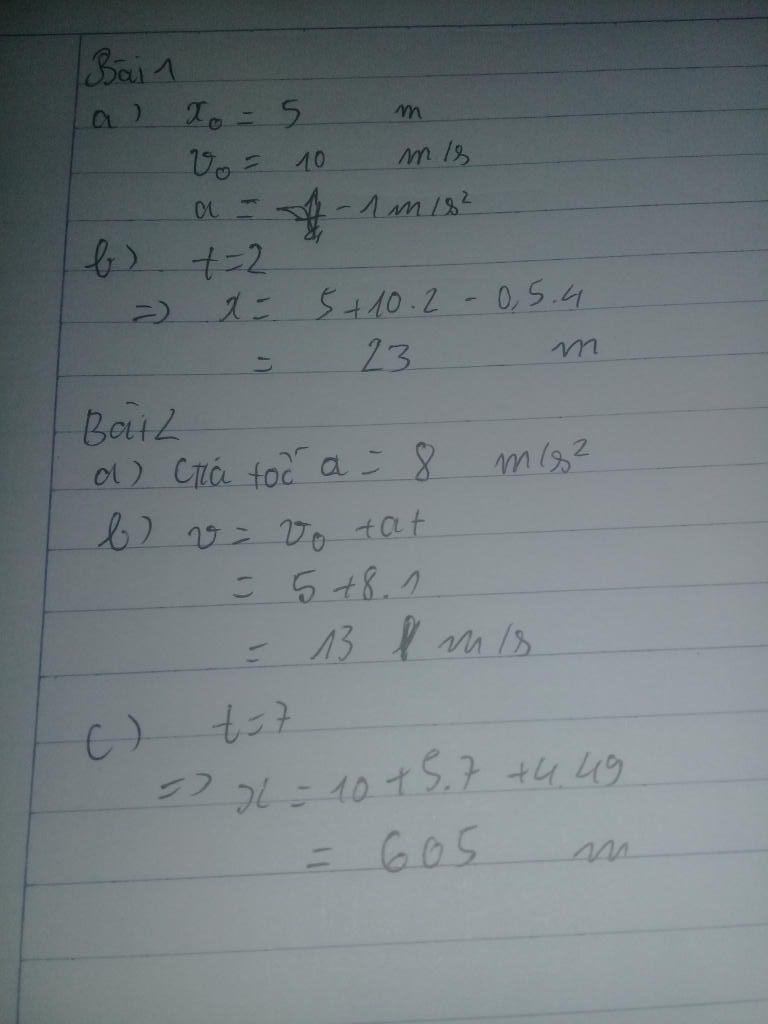 Bài 1
a) x₀ = 5 m
v₀ = 10 m/s
a = -1 m/s²
b) t=2
=> x = 5+10.2 - 0,5.4
= 23 m
Bài 2
a) Gia tốc a = 8 m/s²
b) v = v₀ +at
= 5+8.1
= 13 m/s
c) t=7
=> x = 10+5.7+4.49
= 605 m